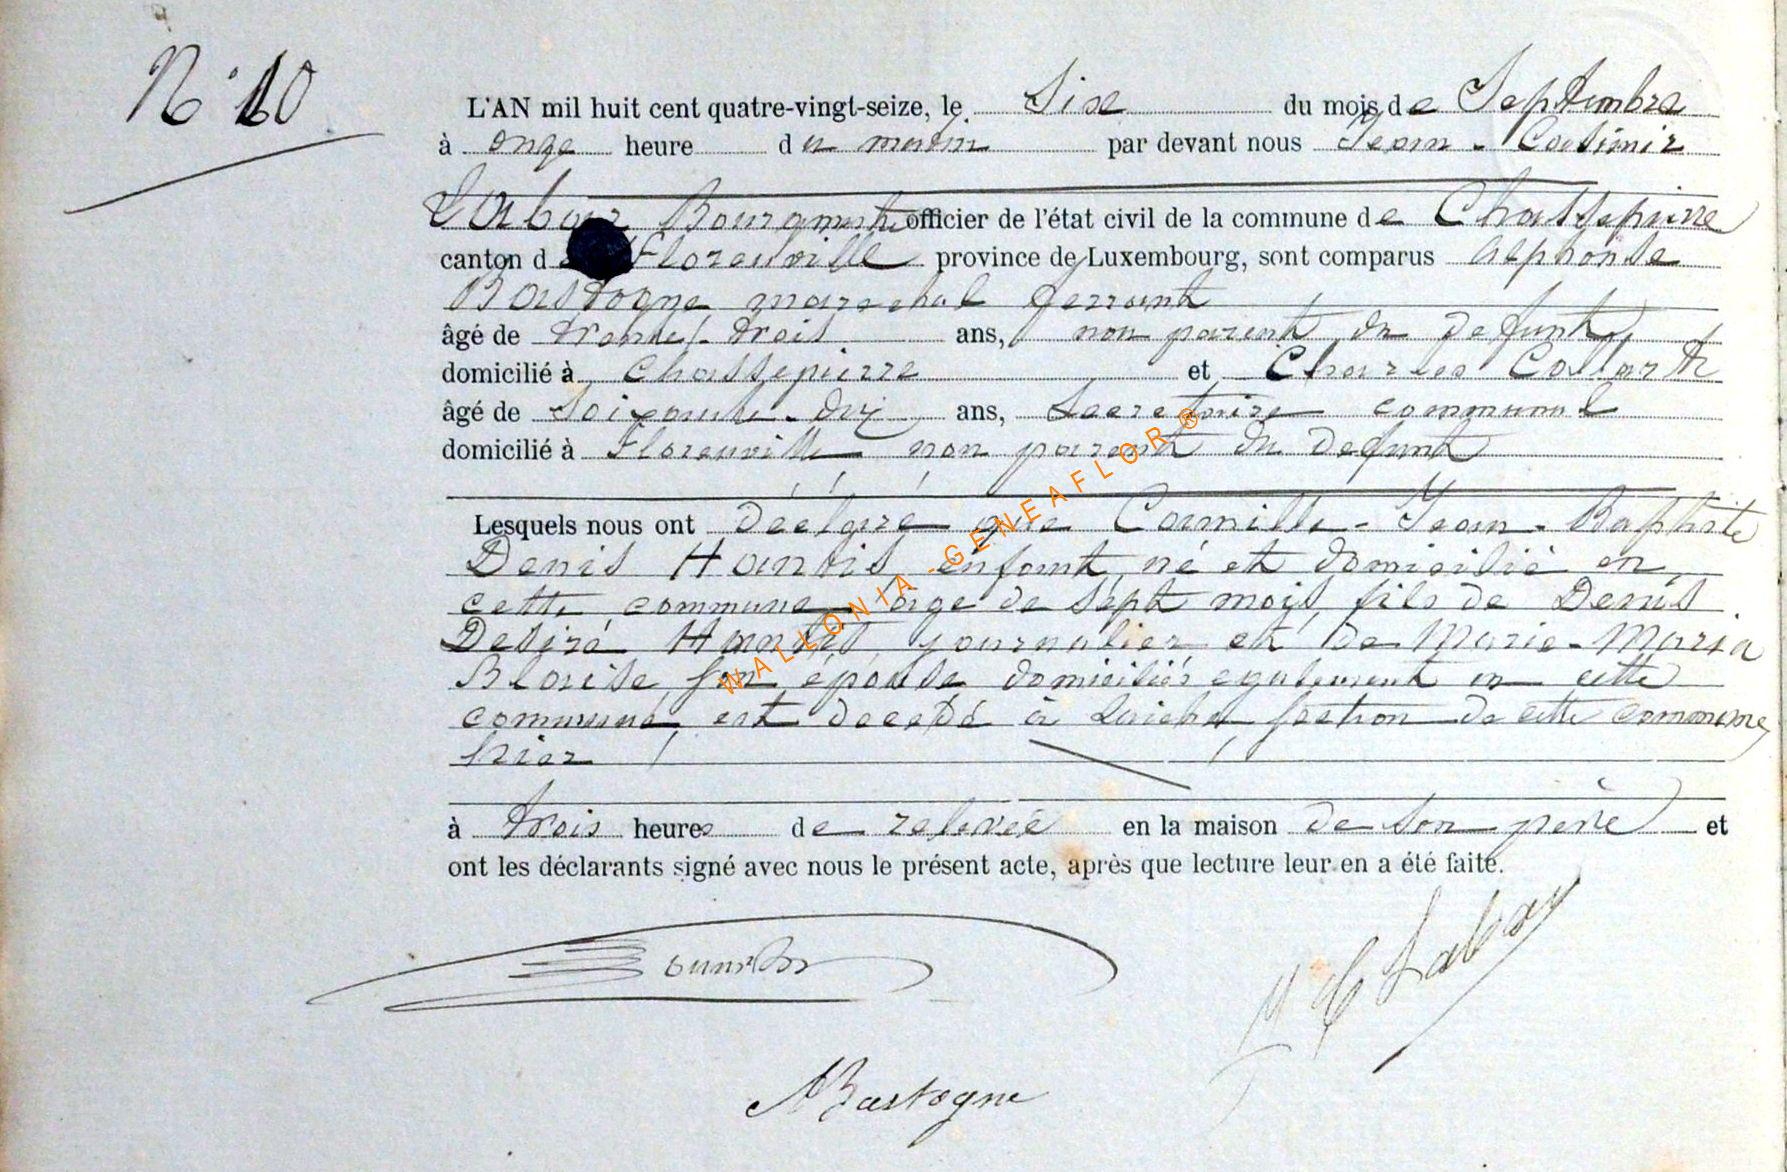 N° 10
L'AN mil huit cent quatre-vingt-seize, le Sixe du mois de Septembre
à onze heure du matin par devant nous Jean-Casimir
Labour Bourgmestre officier de l'état civil de la commune de Chassepierre
canton de Florenville province de Luxembourg, sont comparus Alphonse
Bastogne marechal ferrant
âgé de trente-trois ans, non parent du defunt,
domicilié à Chassepierre et Charles Collart
âgé de Soixante-dix ans, Secretaire communal
domicilié à Florenville non parent du defunt
Lesquels nous ont déclaré que Camille-Jean-Baptiste
Denis Hantis enfant né et domicilié en
cette commune age de sept mois, fils de Denis
Desiré Hantis journalier et de Marie-Maria
Blaise son épouse domiciliés egalement en cette
commune est decedé à Laiche section de cette commune
hier
à trois heures de relevée en la maison de son père et
ont les déclarants signé avec nous le présent acte, après que lecture leur en a été faite.
J C Labour
ABastogne
WALLONIA-GENEAFLOR®